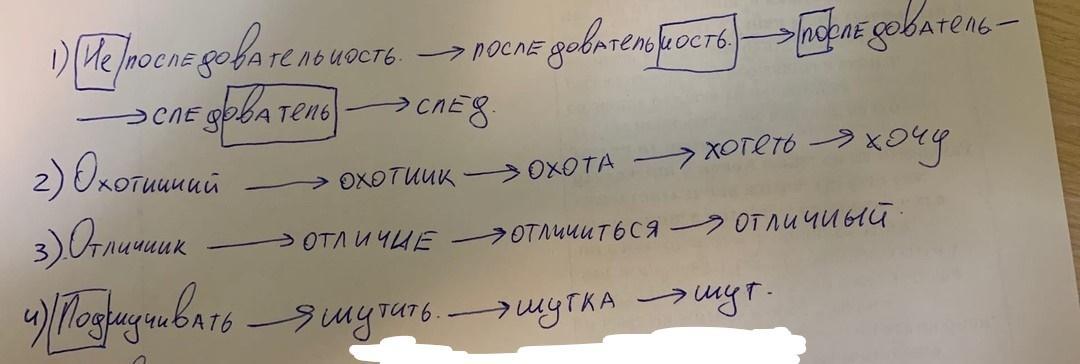 1) Непоследовательность. → последовательность. → последователь –
→ следователь → след.
2) Охотничий → охотник → охота → хотеть → хочу
3). Отличник → отличие → отличиться → отличный.
4) Подшучивать → шутить. → шутка → шут.